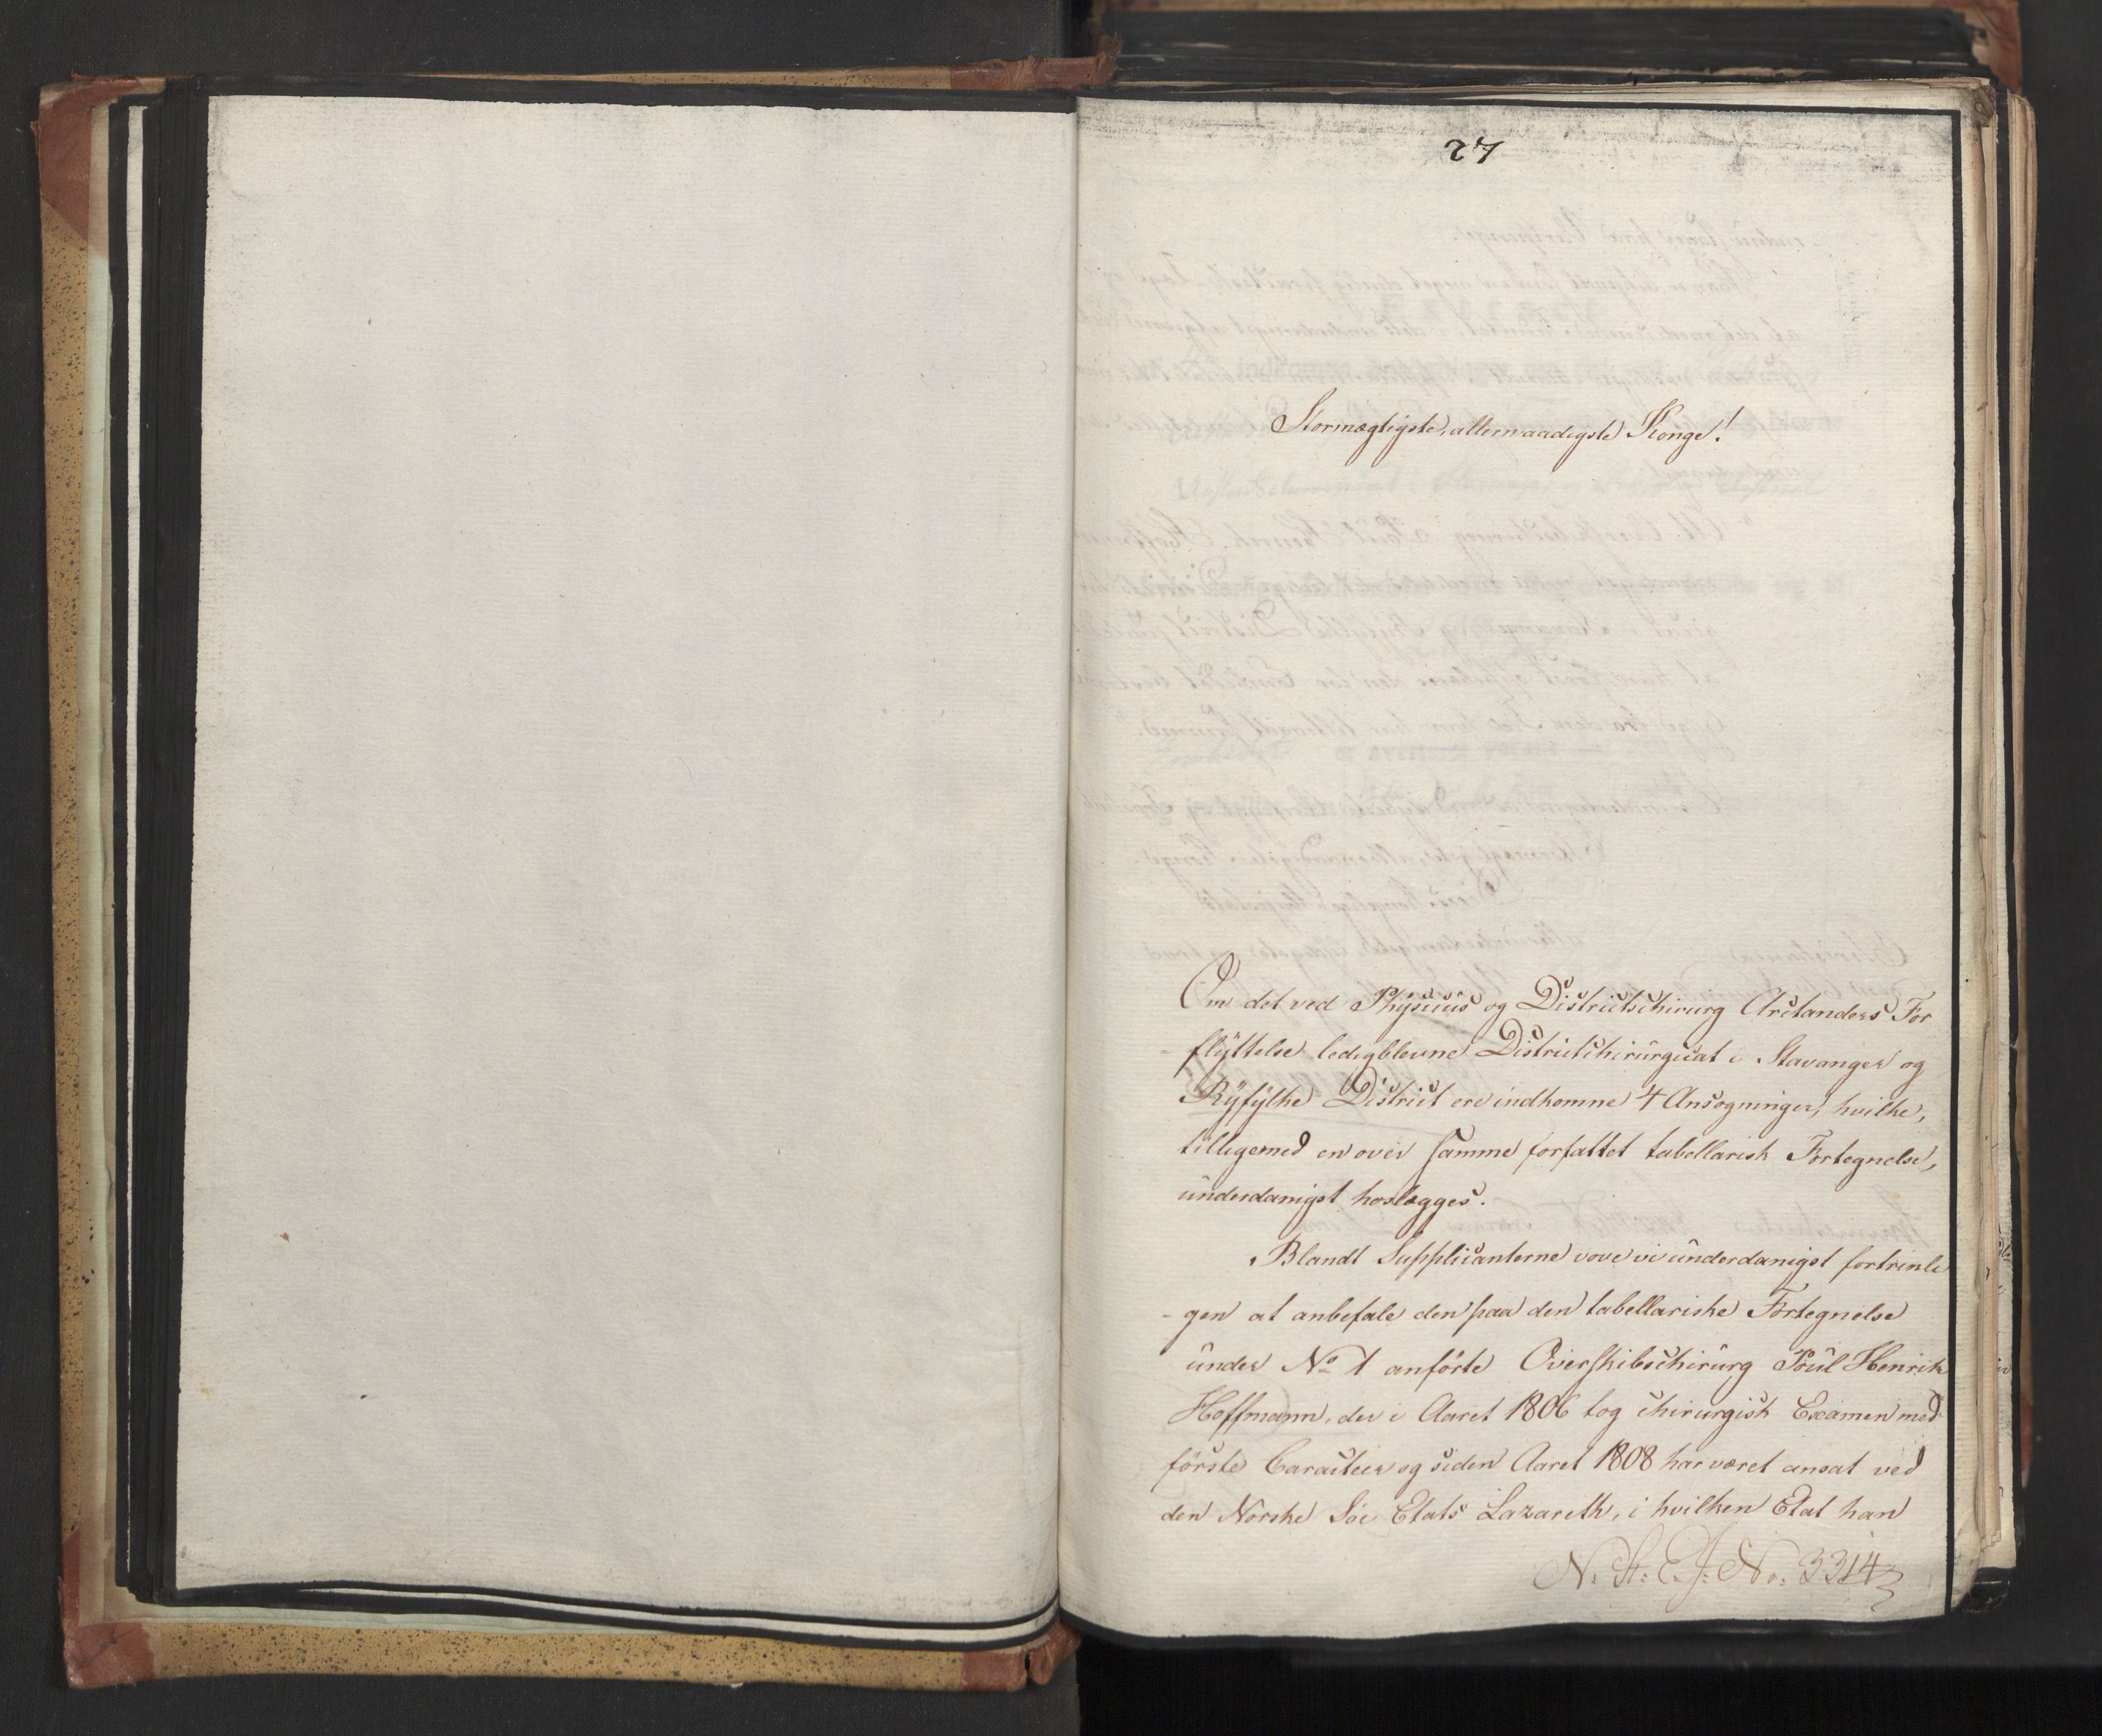 27
Stormægtigste, allernaadigste Konge!
Om det ved Physicus og Districtschirurg Arctanders For
flÿttelse ledigblevne Districtschirurgicat i Stavanger og
Rÿfÿlke District ere indkomne 4 Ansøgninger, hvilke,
tilligemed en over samme forfattet tabellarisk Fortegnelse,
underdanigst hoslægges.
Blandt Supplicanterne vove vi underdanigst fortrinli
-gen at anbefale den paa den tabellariske Fortegnelse
under No 1 anförte Overskibschirurg Poul Henrik
Hoffmann, der i Aaret 1806 tog chirurgisk Examen med
förste Caracteer og siden Aaret 1808 har været ansat ved
den Norske Söe Etats Lazareth, i hvilken Etat han
N. St: C. J: No: 3314